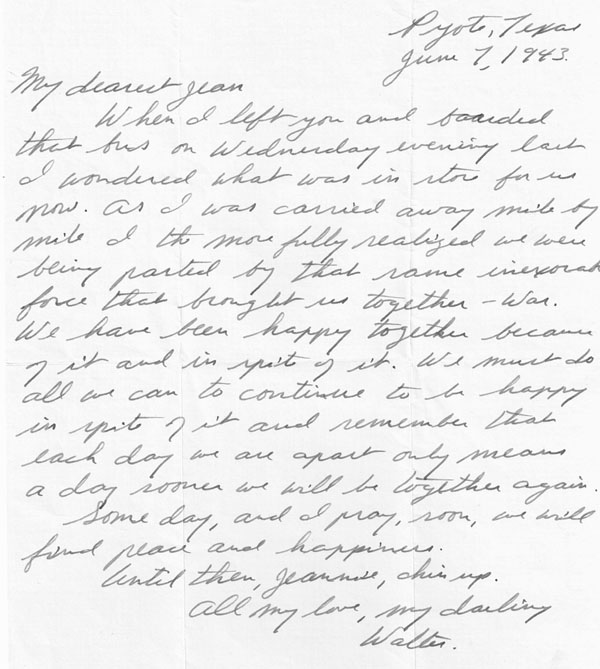 Pyote, Texas
June 7, 1943.
My dearest Jean
When I left you and boarded
that bus on Wednesday evening last
I wondered what was in store for us
now. As I was carried away mile by
mile I the more fully realized we were
being parted by that same inexorab
force that brought us together - War.
We have been happy together because
of it and in spite of it. We must do
all we can to continue to be happy
in spite of it and remember that
each day we are apart only means
a day sooner we will be together again.
Some day, and I pray, soon, we will
find peace and happiness.
Until then, Jeannie, chin up.
All my love, my darling
Walter.